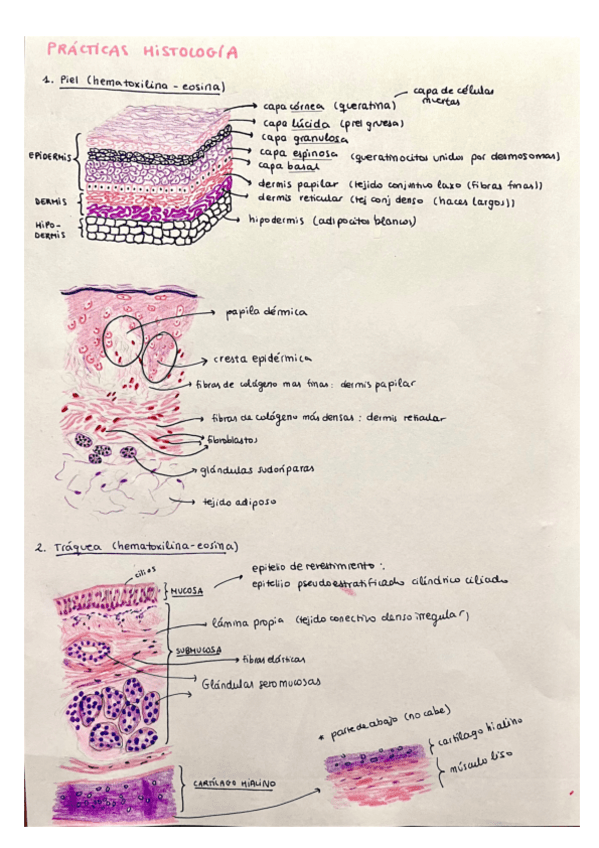 PRÁCTICAS HISTOLOGÍA
1. Piel (hematoxilina - eosina)
capa de células
muertas
capa córnea (queratina)
capa lúcida (piel gruesa)
capa granulosa
capa espinosa (queratinocitos unidos por desmosomas)
capa basal
EPIDERMIS
dermis papilar (tejido conjuntivo laxo (fibras finas))
DERMIS
dermis reticular (tej conj denso (haces largos))
HIPO-
DERMIS
hipodermis (adipocitos blancos)
papila dérmica
cresta epidérmica
fibras de colágeno mas finas: dermis papilar
fibras de colágeno más densas: dermis reticular
fibroblastos
glándulas sudoríparas
tejido adiposo
2. Tráquea (hematoxilina-eosina)
cilios
MUCOSA
epitelio de revestimiento:
epitelio pseudoestratificado cilíndrico ciliado
lámina propia (tejido conectivo denso irregular)
SUBMUCOSA
fibras elásticas
Glándulas seromucosas
* parte de abajo (no cabe)
cartílago hialino
músculo liso
CARTÍLAGO HIALINO